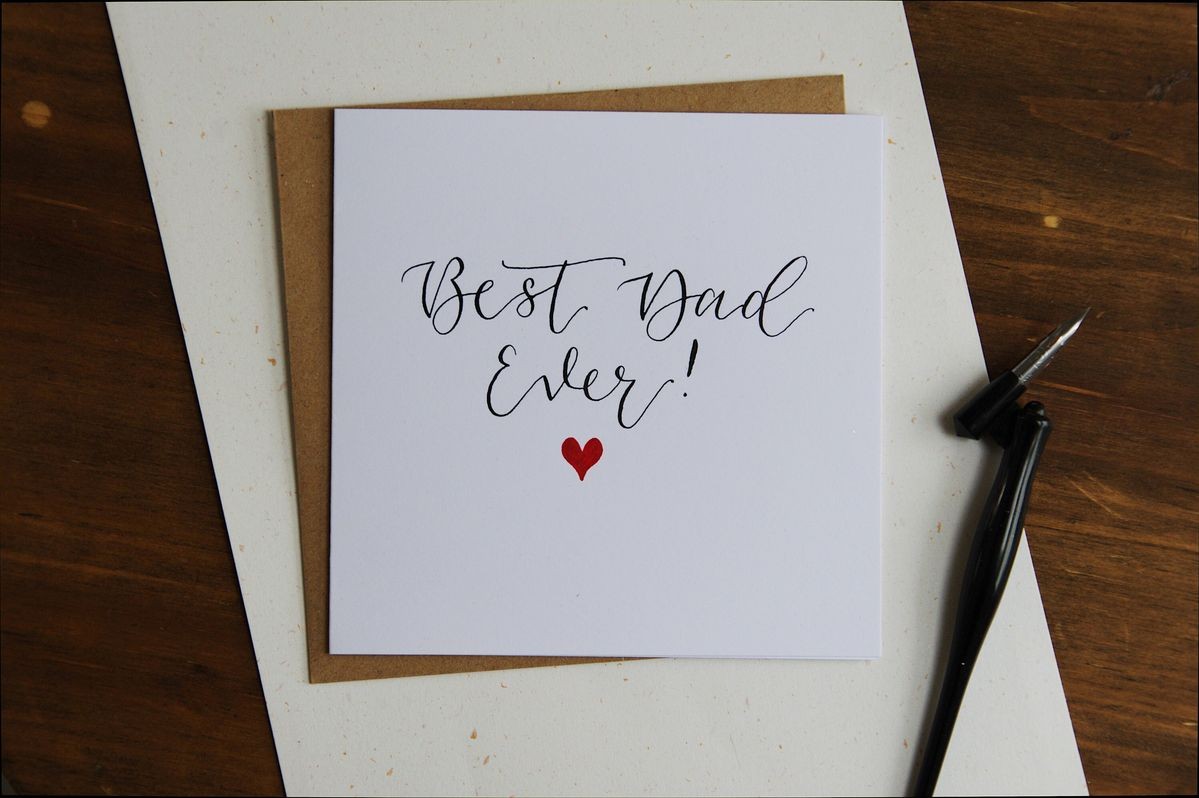 Best Dad
Ever!